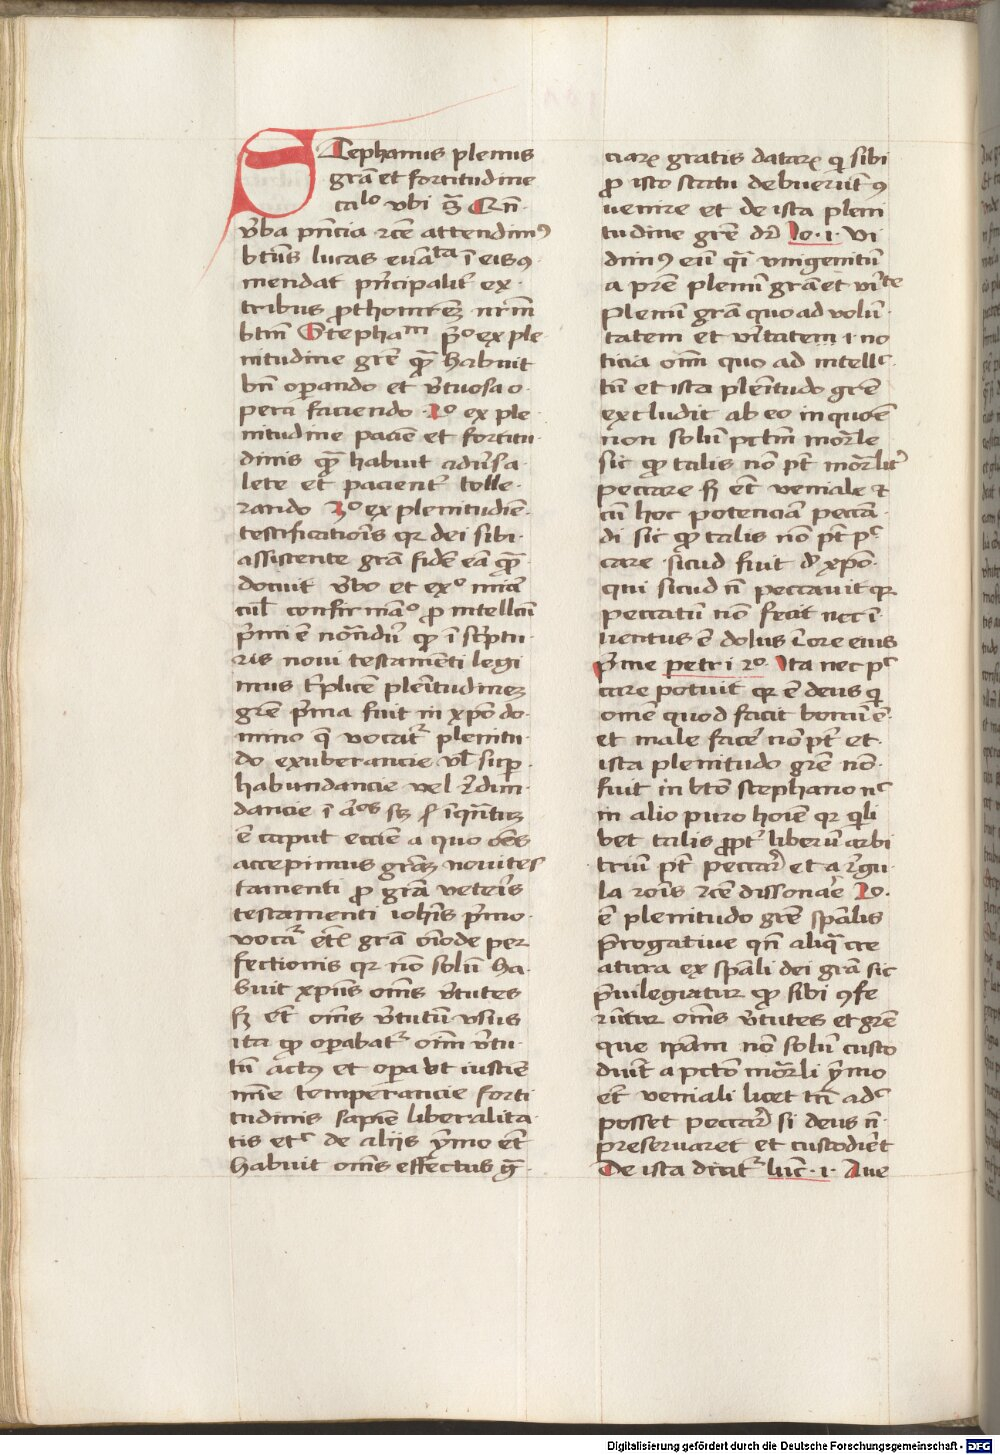 Stephanus plenus
gra͞ et fortitudine
ta lo vbi s̄ Cu͞
v̄ba p̄ncia rc̄e attendim9
bt̄us lucas eua͞ ta ī eis 9
mendat p̄ncipalit͛ ex
tribus prothom̄rem nr̄m
btm̄ Stepham p̄o ex ple
nitudine gr̄e qua͞ habuit
bn̄ oꝑando et v̄tuosa o
pera faciendo 2o ex ple
nitudine pacie͞ et fortitu
dinis qua͞ habuit adu͛sa
lete et pacient͛ tolle
rando 3o ex plenitudi͞e
testificatio͞is qr dei sibi
assistente gra͞ fide͞ ea͞ qua͞
docuit v̄bo et exo mira͞
cul̄ confirmao pro intellc̄u
p̄mi e͞ nota͞ndu͞ qꝫ ī sc̄ptu
ris noui testame͞nti legi
mus t͛plice͞ ple͞itudinem
gr̄e p̄ma fuit in xp̄o do
mino q̄ vocat͛ plenitu
do exuberancie vl̄ suꝑ
habundancie vel r͛dun
dancie
e͞ caput eccie͞ a quo om̄s
accepimus gra͞m noui tes
tamenti pro gra͞ vete͛is
testamenti ioh͞is p̄mo
vocat͛ eti͞ gra͞ om̄ode per
fectionis qr no͞ solu͞ ha
buit xp̄us om̄s v̄tutes
sꝫ et͞ om̄s v̄tutu͞ vsus
ita qꝫ oꝑabat͛ om̄m v̄tu
tu͞ act9 et opera vt iusticie
mi͞e temperancie forti
tudinis sapie͞ liberalita
tis etc de aliis ymo et͞
habuit om̄s effectus gr̄
ciarꝫ gratis datarꝫ qi sibi
pro isto statu debueru͞t 9
uenire et de ista pleni
tudine gr̄e dr̄ Jo · 1 · Vi
dim9 eu͞ qi͞ vnigenitu͞
a pr̄e plenu͞ gra͞ et v͛i te
Plenu͞ gra͞ quo ad volu͞
tatem et v͛itatem · i · no
ticia om̄m quo ad intellc
tu͞ et ista ple͞itudo gr̄e
excludit ab eo in quo e͞
non solu͞ pctm̄ mor͞le
sic qꝫ talis no͞ pt̄ mor͞lit͛
peccare sꝫ et͞ veniale et
cu͞ hoc potencia͞ pecca͞
di sic qꝫ talis no͞ pt̄ pc
care sicud fuit d͞ xp̄o
qui sicud n͞ peccauit qr
peccatu͞ no͞ fecit nec ī
uentus e͞ dolus ī ore eius
p̄me petri 2o · Ita nec pc
care potuit qr e͞ deus qi
ome͞ quod facit bonu͞ e͞
et male face͛ no͞ pt̄ et
ista plenitudo gr̄e no͞
fuit in bt̄o stephano nc
in alio puro ho͞ie qr qili
bet talis propt͛ liberu͞ arbi
triu͞ pt̄ peccar͛ et a r͛gu
la ro͞is rc̄e dissonar͛e 2o
e͞ plenitudo gr̄e sp̄alis
Prerogatiue qn͞ aliqa cre
atura ex sp̄ali dei gra͞ sic
p͛uilegiatur qꝫ sibi 9fe
ru͞tur om̄s v̄tutes et gr̄e
que ip̄am no͞ solu͞ custo
diu͞t a pcto͞ mor͞li ymo
et͞ veniali licet tn͞ adc
posset peccar͛ si deus n͞
preseruaret et custodiret
De ista dicit͛ luc͞ · 1 · Aue
Digitalisierung gefördert durch die Deutsche Forschungsgemeinschaft - DFG